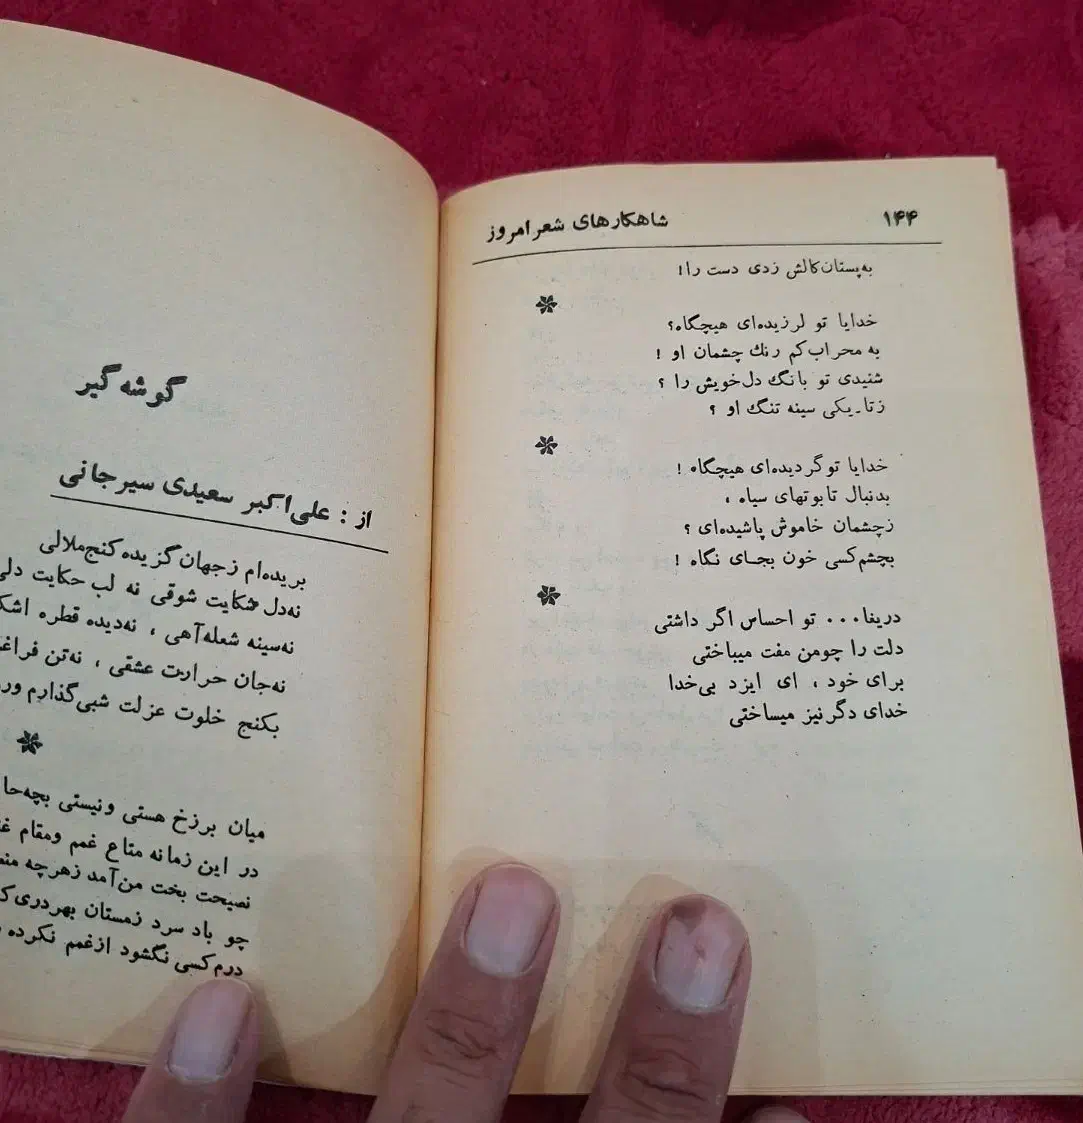 ۱۴۴
شاهکارهای شعر امروز
به‌پستان کالش زدی دست را!
خدایا تو لرزیده‌ای هیچگاه؟
به محراب کم رنك چشمان او !
شنیدی تو بانگ دل‌خویش را ؟
زتاریکی سینه تنگ او ؟
خدایا تو گردیده‌ای هیچگاه !
بدنبال تابوتهای سیاه ،
زچشمان خاموش پاشیده‌ای ؟
بچشم‌کسی خون بجای نگاه !
دریغا... تو احساس اگر داشتی
دلت را چومن مفت میباختی
برای خود ، ای ایزد بی‌خدا
خدای دگر نیز میساختی
گوشه گیر
از : علی‌اکبر سعیدی سیرجانی
بریده‌ام زجهان گزیده کنج‌ملالی
نه‌دل شکایت شوقی نه لب حکایت
نه‌سینه شعله‌آهی ، نه‌دیده قطره
نه‌جان حرارت عشقی ، نه‌تن
بکنج خلوت عزلت شبی‌گذارم
میان برزخ هستی ونیستی
در این زمانه متاع غمم ومقام
نصیحت بخت من‌آمد زهرچه
چو باد سرد زمستان بهردری
درم‌کسی نگشود ازغمم نکرده